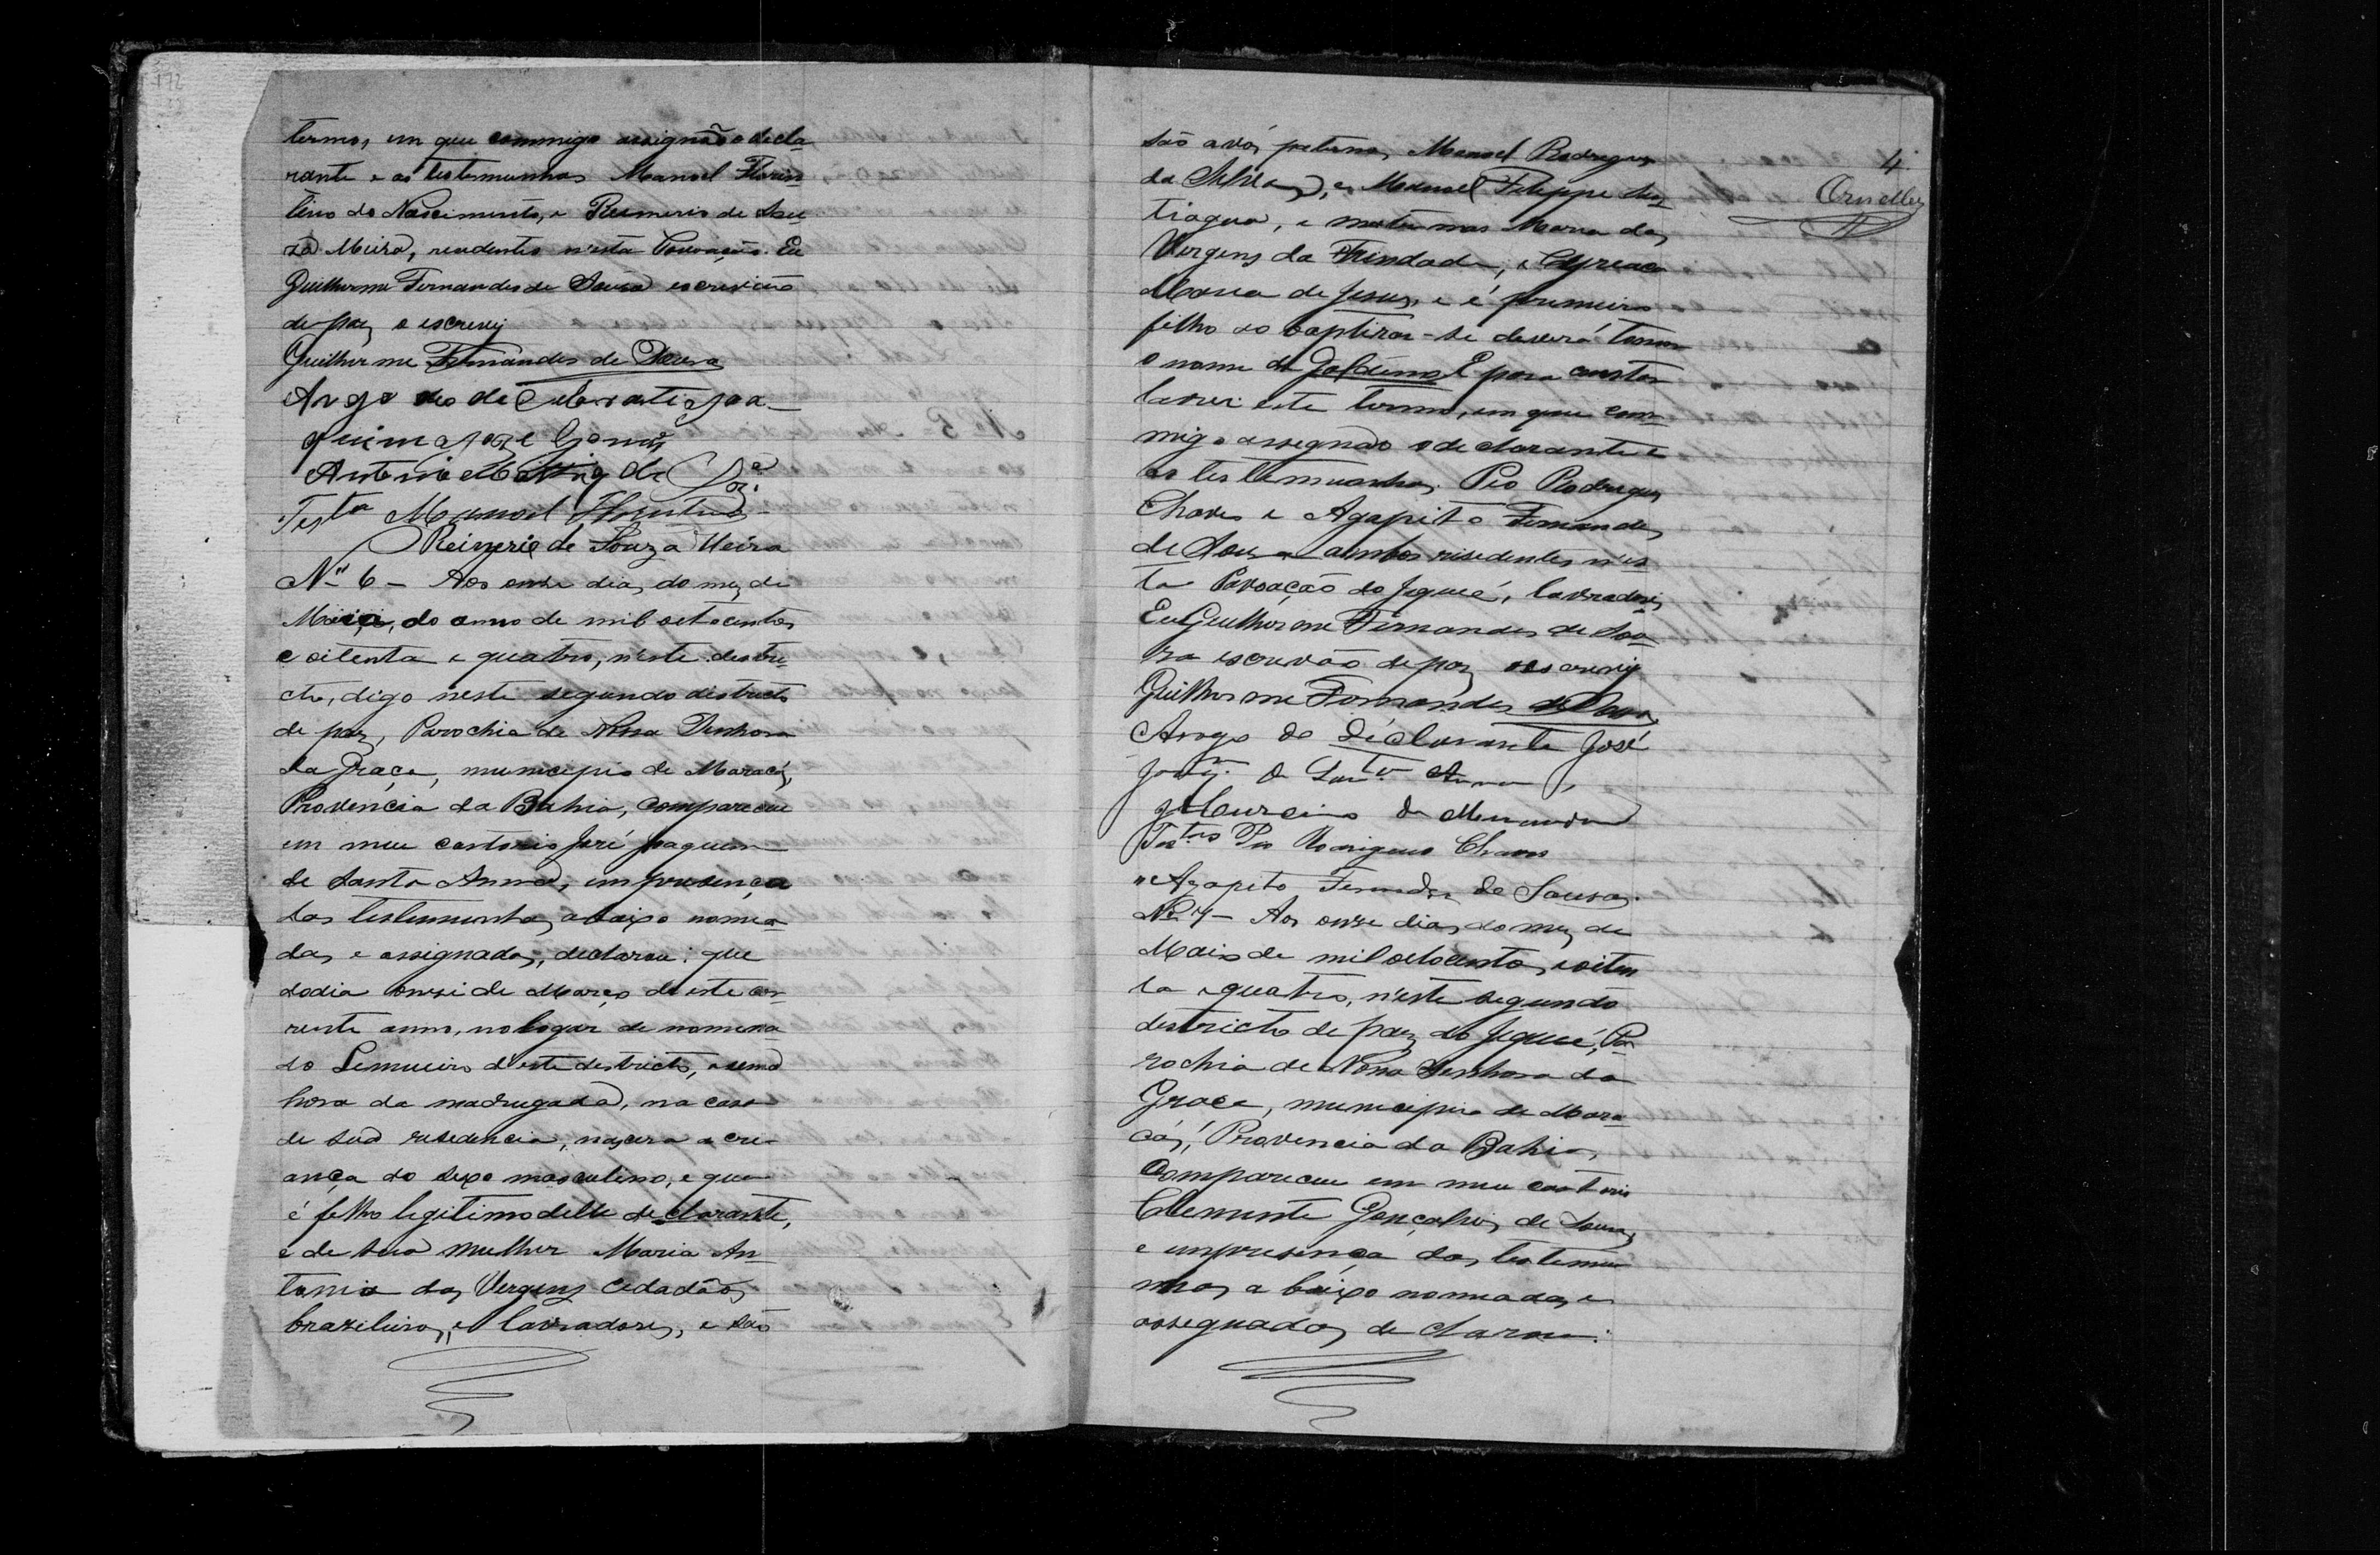 termo, em que commigo assignão o decla-
rante e as testemunhas Manoel Floren-
tino do Nascimento, e Reinerio de Sou-
za Meira, residentes n'esta Povoação. Eu
Guilherme Fernandes de Souza escrivão
de paz o escrevy
Guilherme Fernandes de Souza
Arogo do declarante Joa-
quim Joze Gomes
Antonio
Testa Manoel Florentino
Reinerio de Souza Meira
Nº 6 - Aos onze dias do mez de
Maio, do anno de mil oitocentos
e oitenta e quatro, n'este destri-
cto, digo neste segundo districto
de paz, Parochia de Nossa Senhora
da Graça, municipio de Maracás,
Provencia da Bahia, compareceu
em meu cartorio José Joaquim
de Santa Anna, em presença
das testemunhas abaixo nomea-
das e assignadas, declarou: que
do dia onze de Março d'este cor-
rente anno, no logar denomina-
do Limueiro d'este destricto, a uma
hora da madrugada, na casa
de sua residencia, nascera a cre-
ança do sexo masculino, e que
é filho legitimo delle declarante,
e de sua mulher Maria An-
tonia das Vergens cidadãos
brazileiros, e lavradores, e são
4
Ornellas
são avós paternos, Manoel Rodrigues
da Silva, e Manoel Felippe San-
tiago, e maternos Maria das
Vergens da Trindade, e Cypriana
Maria de Jesus, e é primeiro
filho ao baptizar-se deverá tomar
o nome de Galdino. E para constar
lavrei este termo, em que com-
migo assegnão o declarante e
as testemunhas Pio Rodrigues
Chaves e Agapito Fernandes
de Souza ambos risedentes n'es-
ta Povoação do Jequié, lavradores
Eu Guilherme Fernandes de Sou-
za escrivão de paz o escrevy
Guilherme Fernandes de Souza
Arogo do declarante José
Joaqm. de Santa Anna,
de Menezes
Testas Pio Rodrigues Chaves
" Agapito Fernandes de Souza.
Nº 7 - Aos onze dias do mez de
Maio de mil oitocentos e oiten
ta e quatro, n'este segundo
destricto de paz do Jequié, Pa-
rochia de Nossa Senhora da
Graça, municipio de Mara-
cás, Provencia da Bahia,
compareceu em meu cartorio
Clemente Gonçalves de Souza,
e em presença das testemu
nhas a baixo nomeadas e
assegnadas declarou: